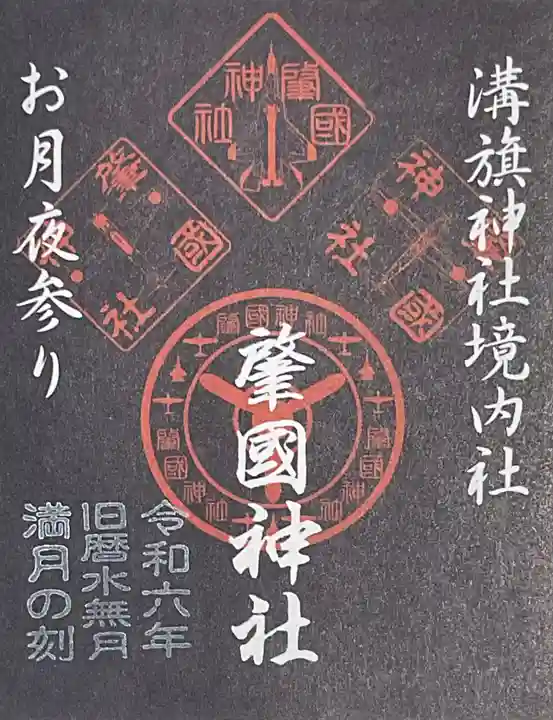 溝旗神社境内社
肇國神社
お月夜参り
令和六年
旧暦水無月
満月の刻
肇國神社
肇國神社
肇國神社
肇國神社
肇國神社
肇國神社